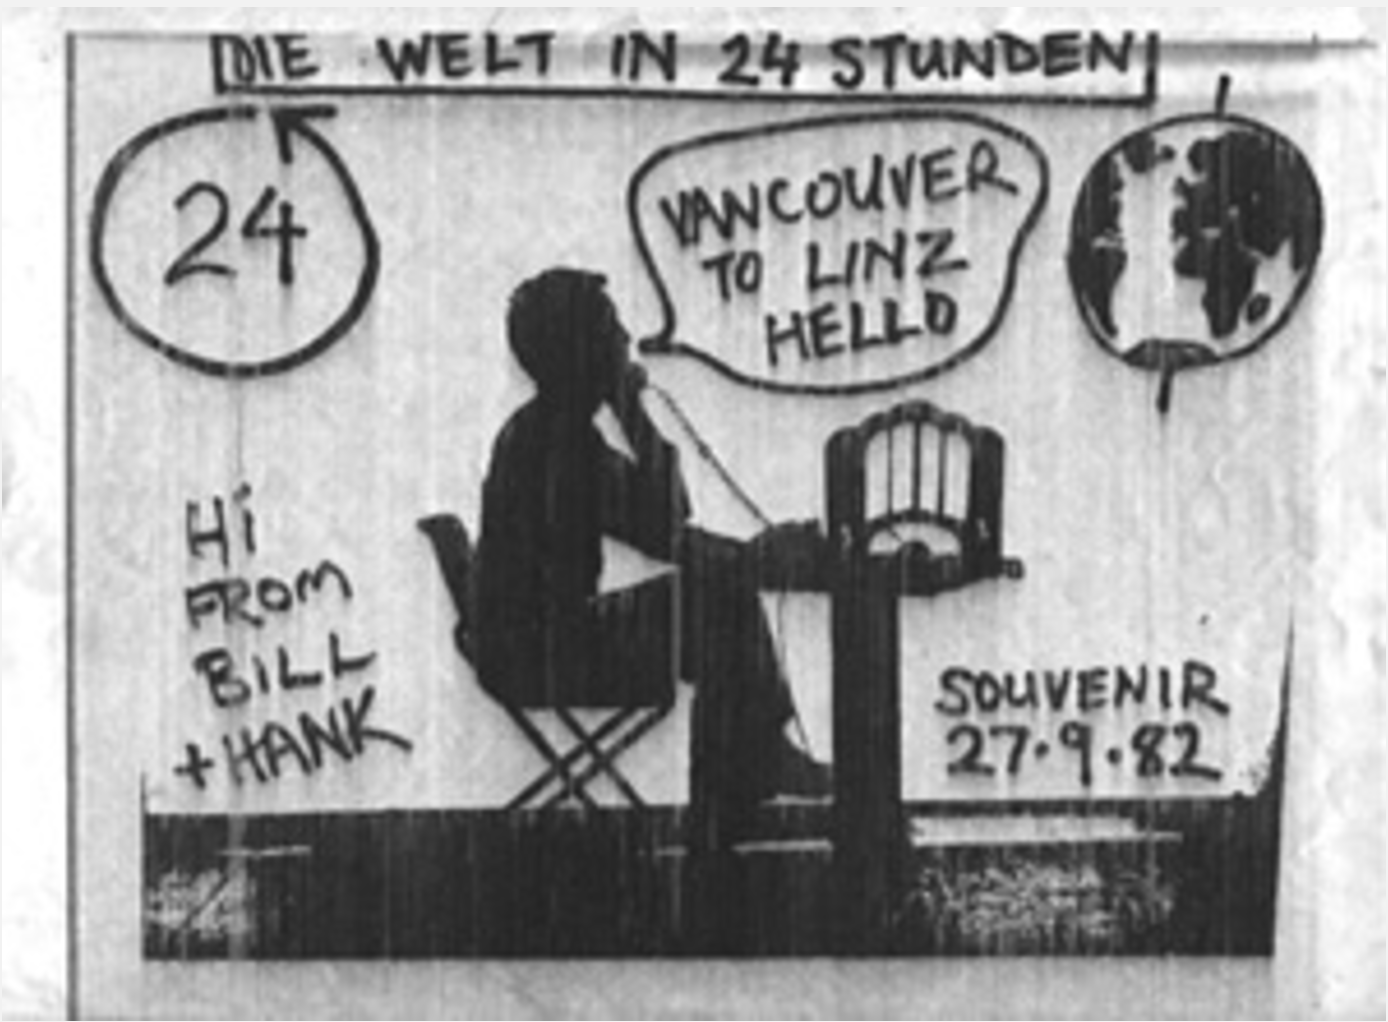 DIE WELT IN 24 STUNDEN
24
VANCOUVER
TO LINZ
HELLO
Hi
FROM
BILL
+ HANK
SOUVENIR
27.9.82